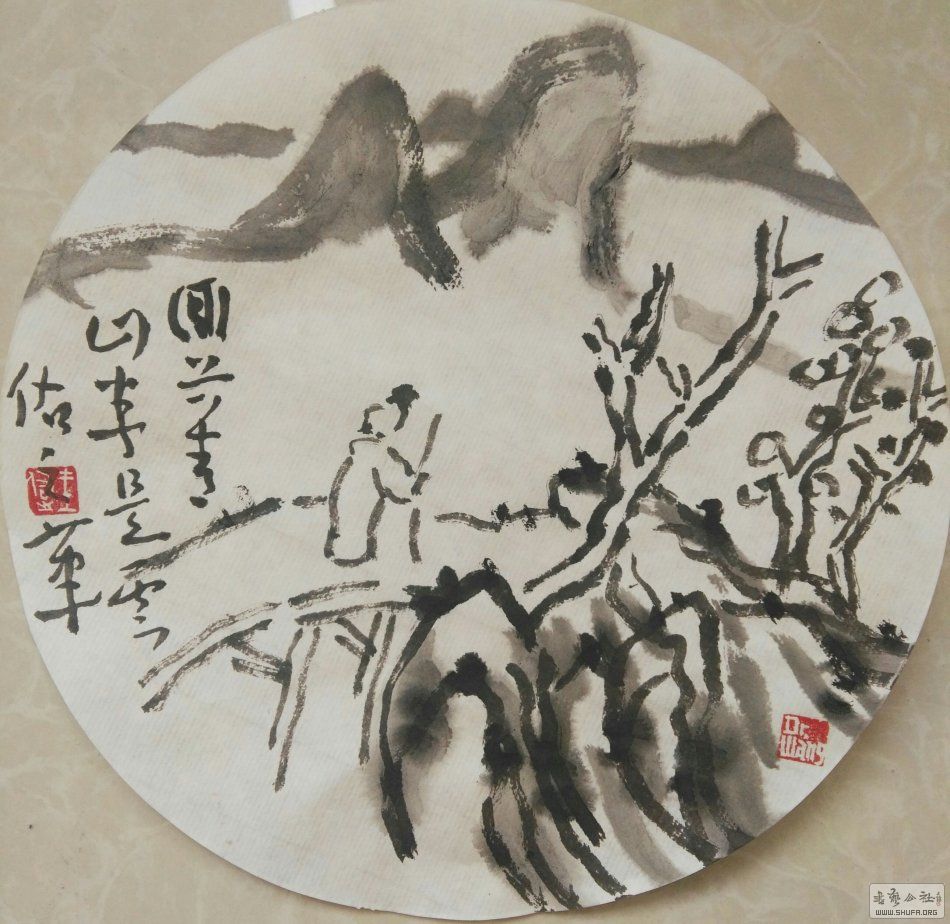 回首青
山半是雲
佑之
Dr
Wang
書藝公社
WWW.SHUFA.ORG